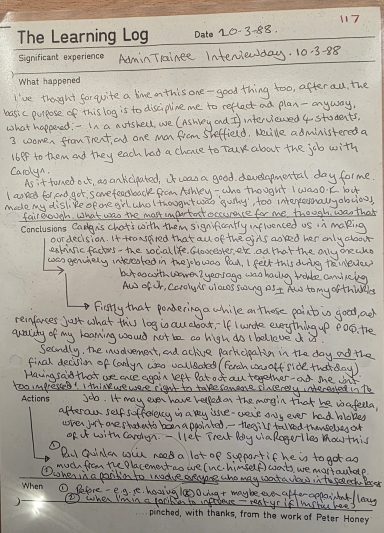 117
The Learning Log Date 10-3-88.
Significant experience Admin Trainee Interviewday. 10-3-88
What happened
I've thought for quite a time on this one - good thing too, after all, the
basic purpose of this log is to discipline me to reflect and plan - anyway,
what happened; - In a nutshell, we (Ashley and I) interviewed 4 students,
3 women from Trent, and one man from Sheffield. Neville administered a
16PF to them and they each had a chance to talk about the job with
Carolyn.
As it turned out, as anticipated, it was a good developmental day for me.
I asked for and got, some feedback from Ashley - who thought I was O.K. but
made my dislike of one girl who I thought was 'gushy', too interpersonally obvious,
fair enough. What was the most important occurence for me, though, was that
Conclusions Carolyn's chats with them significantly influenced us in making
our decision. It transpired that all of the girls asked her only about
extrinsic factors - the social life, Gloucester, etc and that the only one who
was genuinely interested in the job was Paul. I felt this during the interview
but as with women 2 years ago was having trouble convincing
Aw of it, Carolyn's views swung Aw to my thinking
Firstly that pondering a while on these points is good, and
reinforces just what this log is all about. - If I wrote everything up P.D.Q. the
quality of my learning would not be as high as I believe it is.
Secondly, the involvement, and active participation in the day and the
final decision of Carolyn was well rated (Farah was off sick that day)
Having said that we once again left Pat out altogether - and she isn't
too impressed! I think we were right to take someone sincerely interested in the
Actions job. It may even have helped on the margin that he is a fella,
after all self sufficiency is a key issue - we've only ever had hitches
when just one student's been appointed. - The girls talked themselves out
of it with Carolyn. - I let Trent Poly via Roger Iles know this
① Paul Quinlan will need a lot of support if he is to get as
much from the placement as we (inc. himself) want, we must all help.
② when in a position to involve everyone who may want a voice in the selection process
When ① Before - e.g. re. housing/ ② During + maybe even after appointment/
② when I'm in a position to influence -
.... pinched, with thanks, from the work of Peter Honey